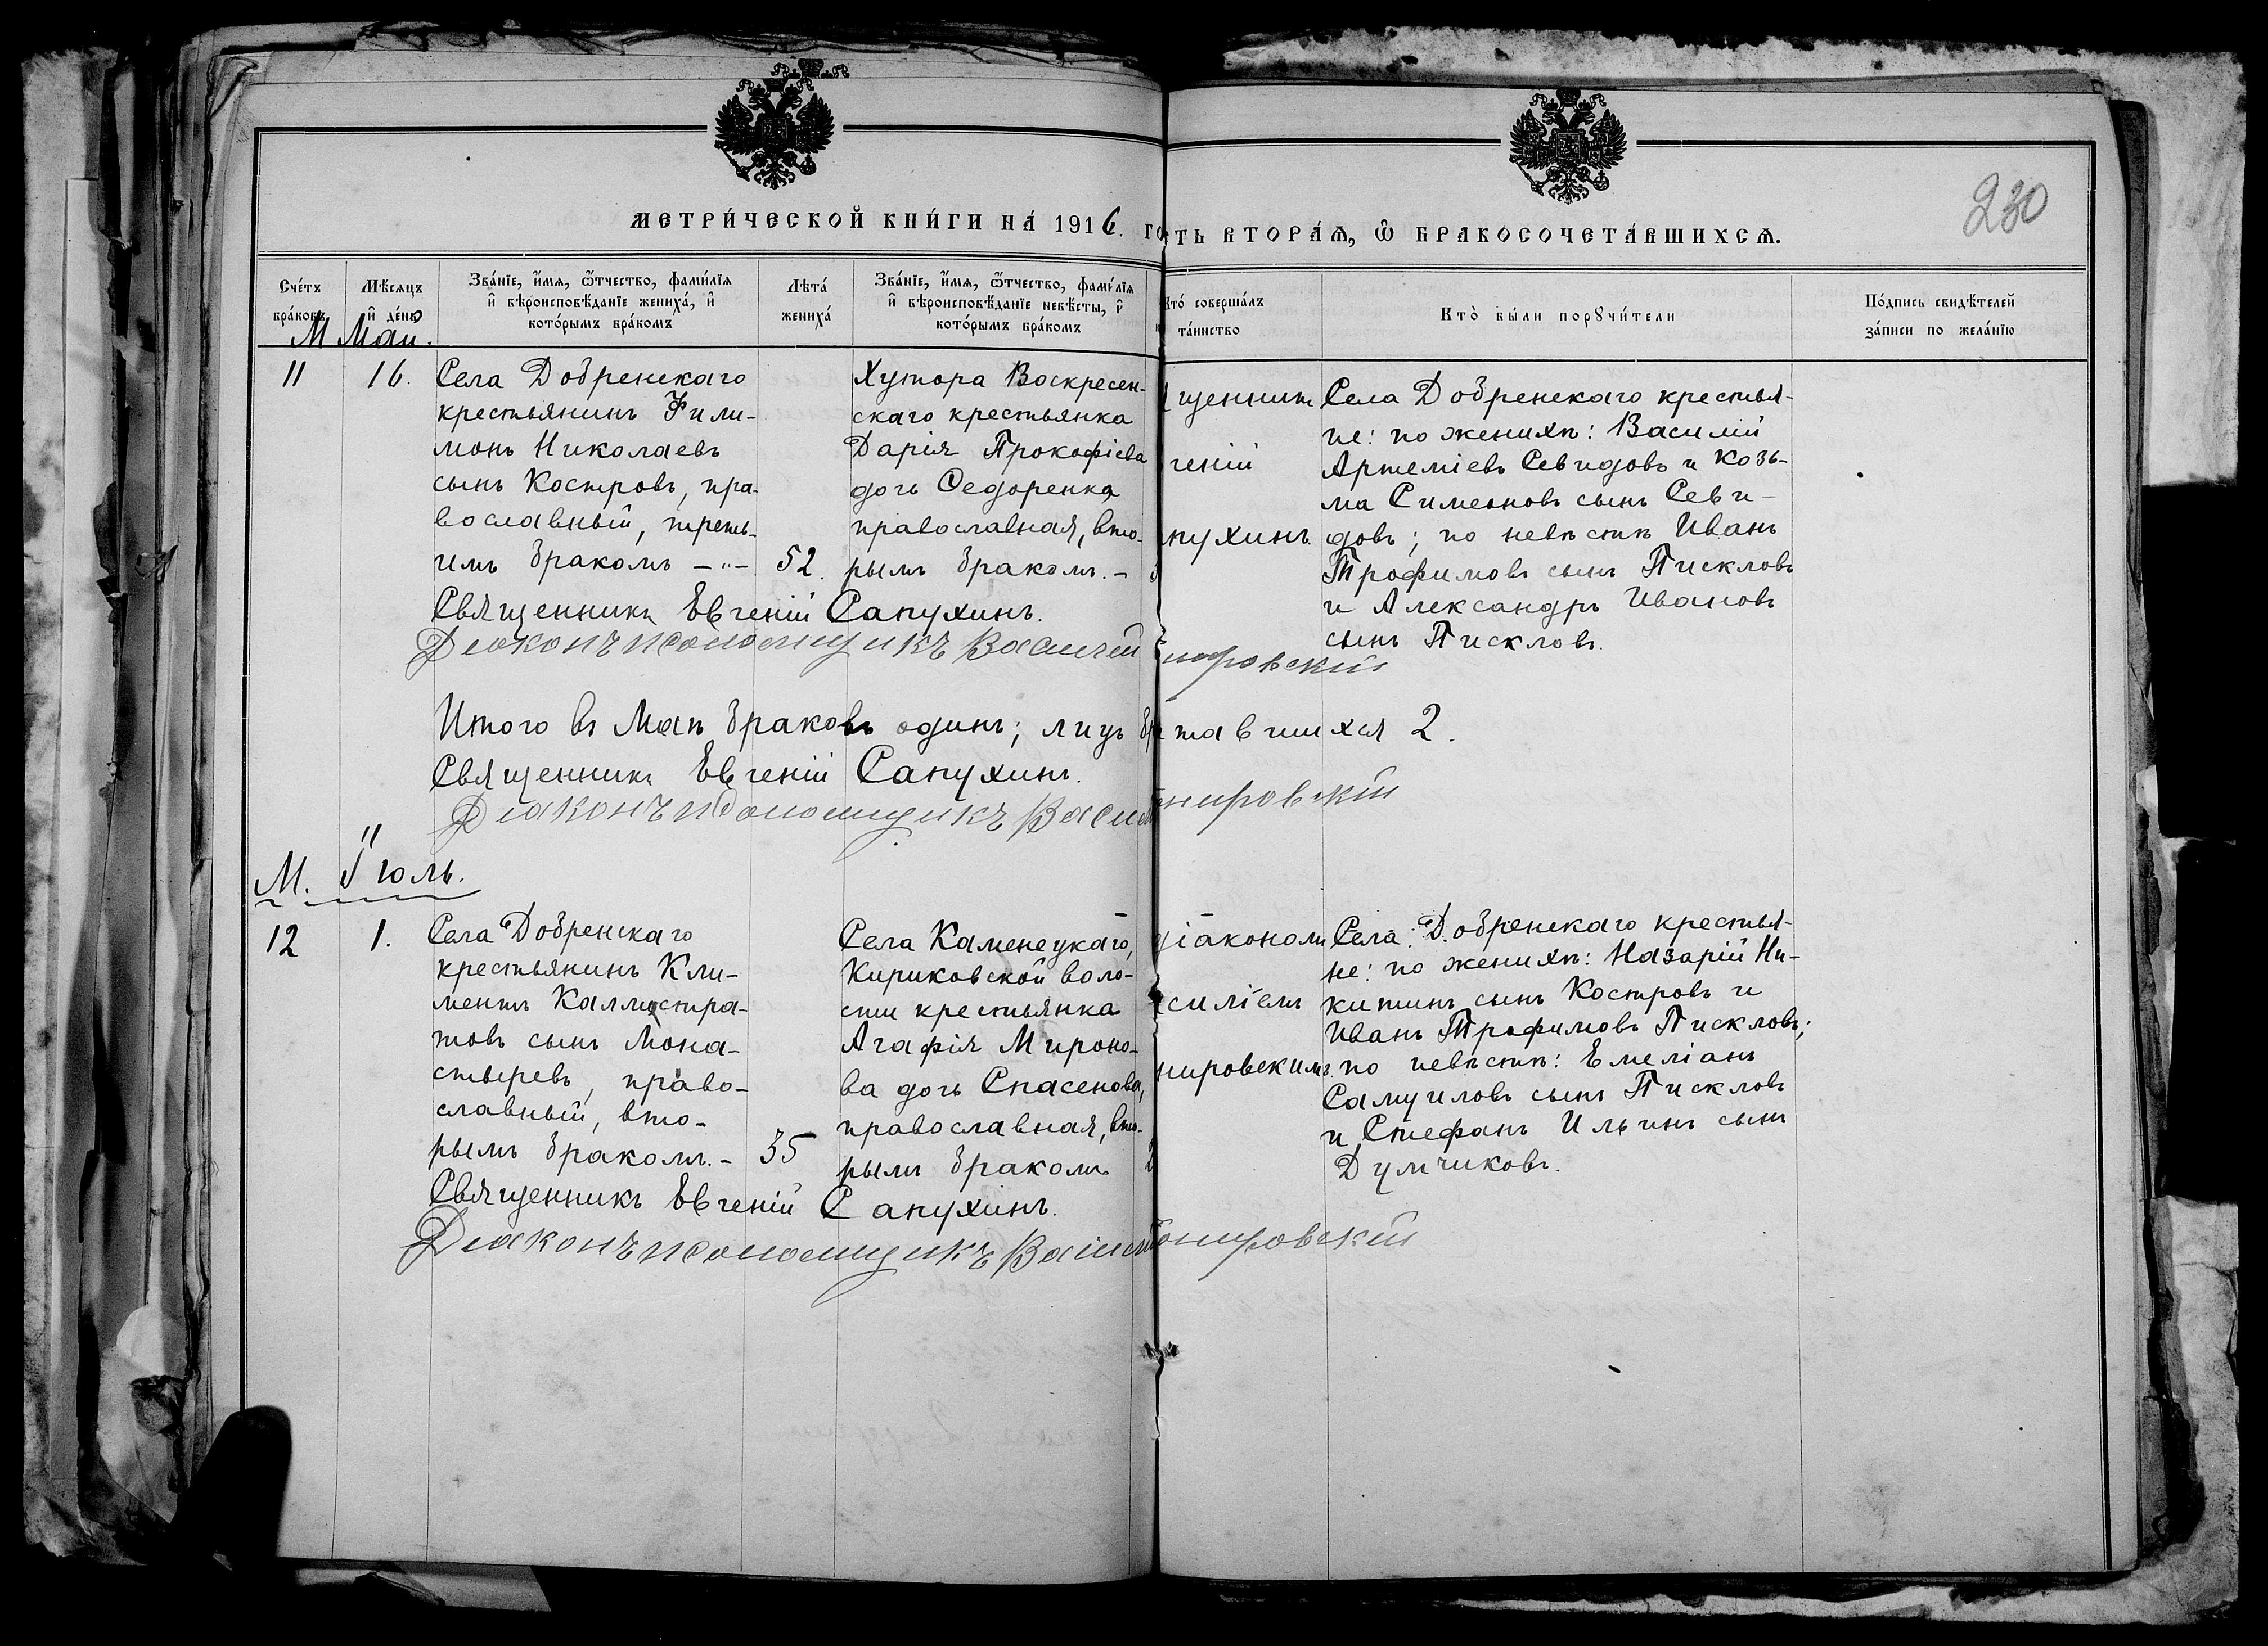 230
МЕТРИ́ЧЕСКОЙ КНИ́ГИ НА́ 1916. ГО
ТЬ ВТОРА́Ѧ, Ѡ҆ БРАКОСОЧЕТА́ВШИХСѦ.
Сче́тъ
бра́ковъ
Мѣ́сѧцъ
и҆ де́нь
Зва́нїе, и҆́мѧ, ѻ҆́тчество, фами́лїѧ
и҆ вѣроисповѣ́данїе жениха́, и҆
кото́рымъ бра́комъ
Лѣта́
жениха́
Зва́нїе, и҆́мѧ, ѻ҆́тчество, фами́лїѧ
и҆ вѣроисповѣ́данїе невѣ́сты, и҆
кото́рымъ бра́комъ
Кто̀ соверша́лъ
та́инство
Кто̀ бы́ли порꙋчи́тели
По́дпись свидѣ́телей
за́писи по жела́нїю
М Май.
11
16.
Села Добренскаго
крестьянинъ Фили-
монъ Николаевъ
сынъ Костровъ, пра-
вославный, треть-
имъ бракомъ –"–
52.
Хутора Воскресен-
скаго крестьянка
Дарія Прокофіева
дочь Федоренка
православная, вто-
рымъ бракомъ. –
щенникъ
геній
пухинъ.
Села Добренскаго крестья-
не: по женихѣ: Василій
Артеміевъ Севидовъ и Козь-
ма Симеоновъ сынъ Севи-
довъ; по невѣстѣ Иванъ
Трофимовъ сынъ Писклов
и Александръ Ивановъ
сынъ Писклов.
Священникъ Евгеній Сапухинъ.
Діаконъ псаломщикъ Василій нировскій
Итого въ Маѣ браковъ одинъ; лицъ бр тавшихся 2.
Священникъ Евгеній Сапухинъ.
Діаконъ псаломщикъ Васил нировскій
М. Іюль.
12
1.
Села Добренскаго
крестьянинъ Кли-
ментъ Каллистра-
товъ сынъ Мона-
стыревъ, право-
славный, вто-
рымъ бракомъ. –
35
Села Каменецкаго,
Кириковской воло-
сти крестьянка
Агафія Мироно-
ва дочь Спасенова,
православная, вто-
рымъ бракомъ
діакономъ
силіемъ
нировскимъ.
Села Добренскаго крестья-
не: по женихѣ: Назарій Ни-
китинъ сынъ Костровъ и
Иванъ Трофимовъ Пискловъ;
по невѣстѣ: Емеліанъ
Самуиловъ сынъ Писклов
и Стефанъ Ильинъ сынъ
Думчиковъ.
Священникъ Евгеній Сапухинъ.
Діаконъ псаломщикъ Васил онировскій